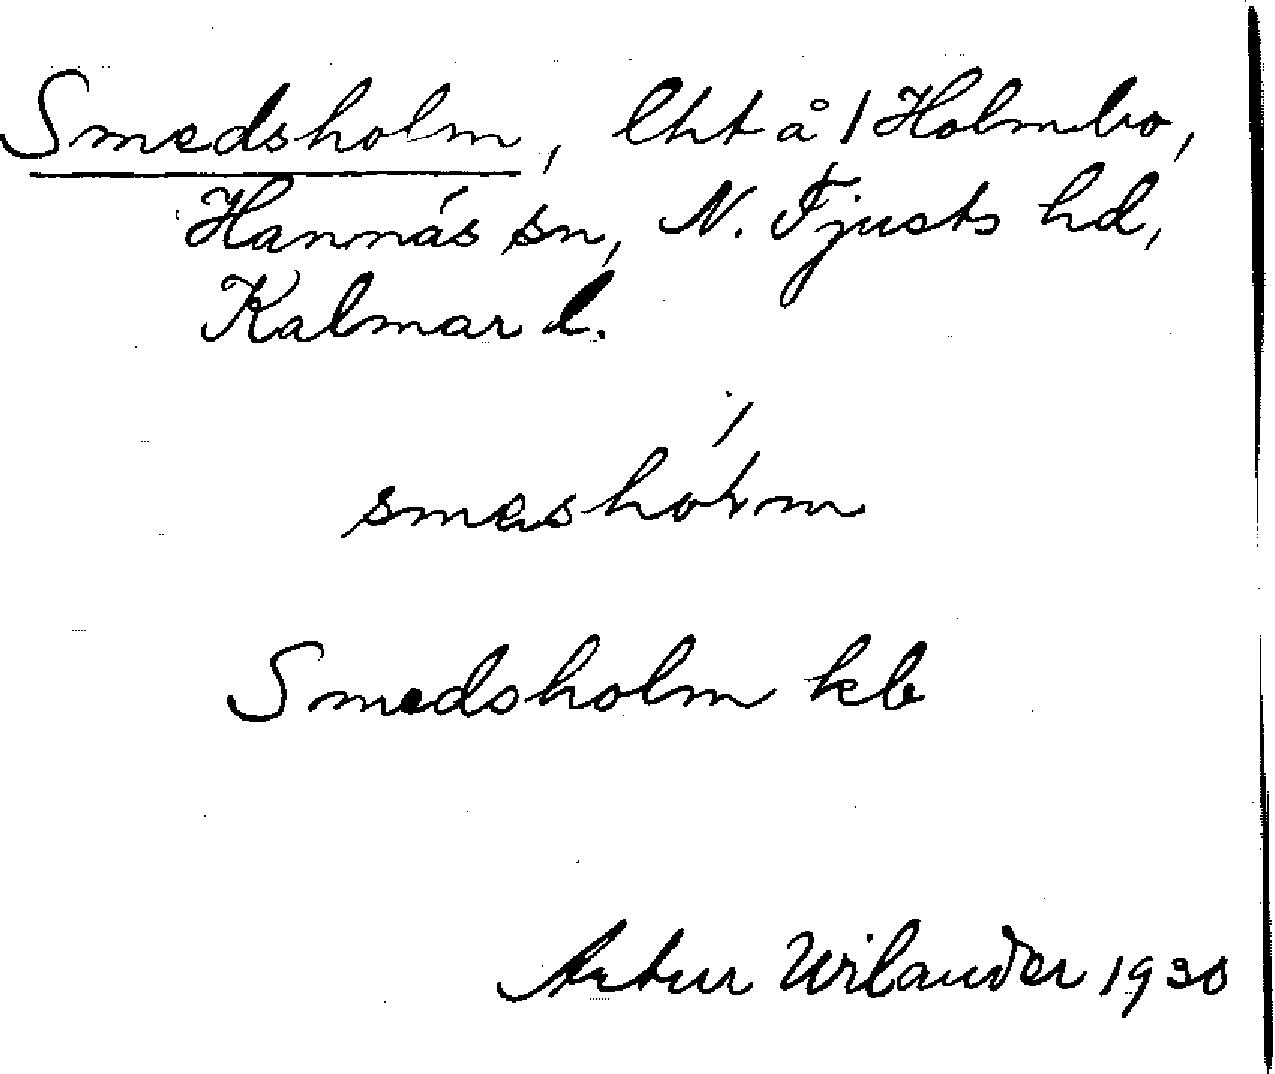 Smedsholm, lht å 1 Holmbo,
Hannäs sn, N. Tjusts hd,
Kalmar l.
Smedsholm kb
Artur Wilander 1930